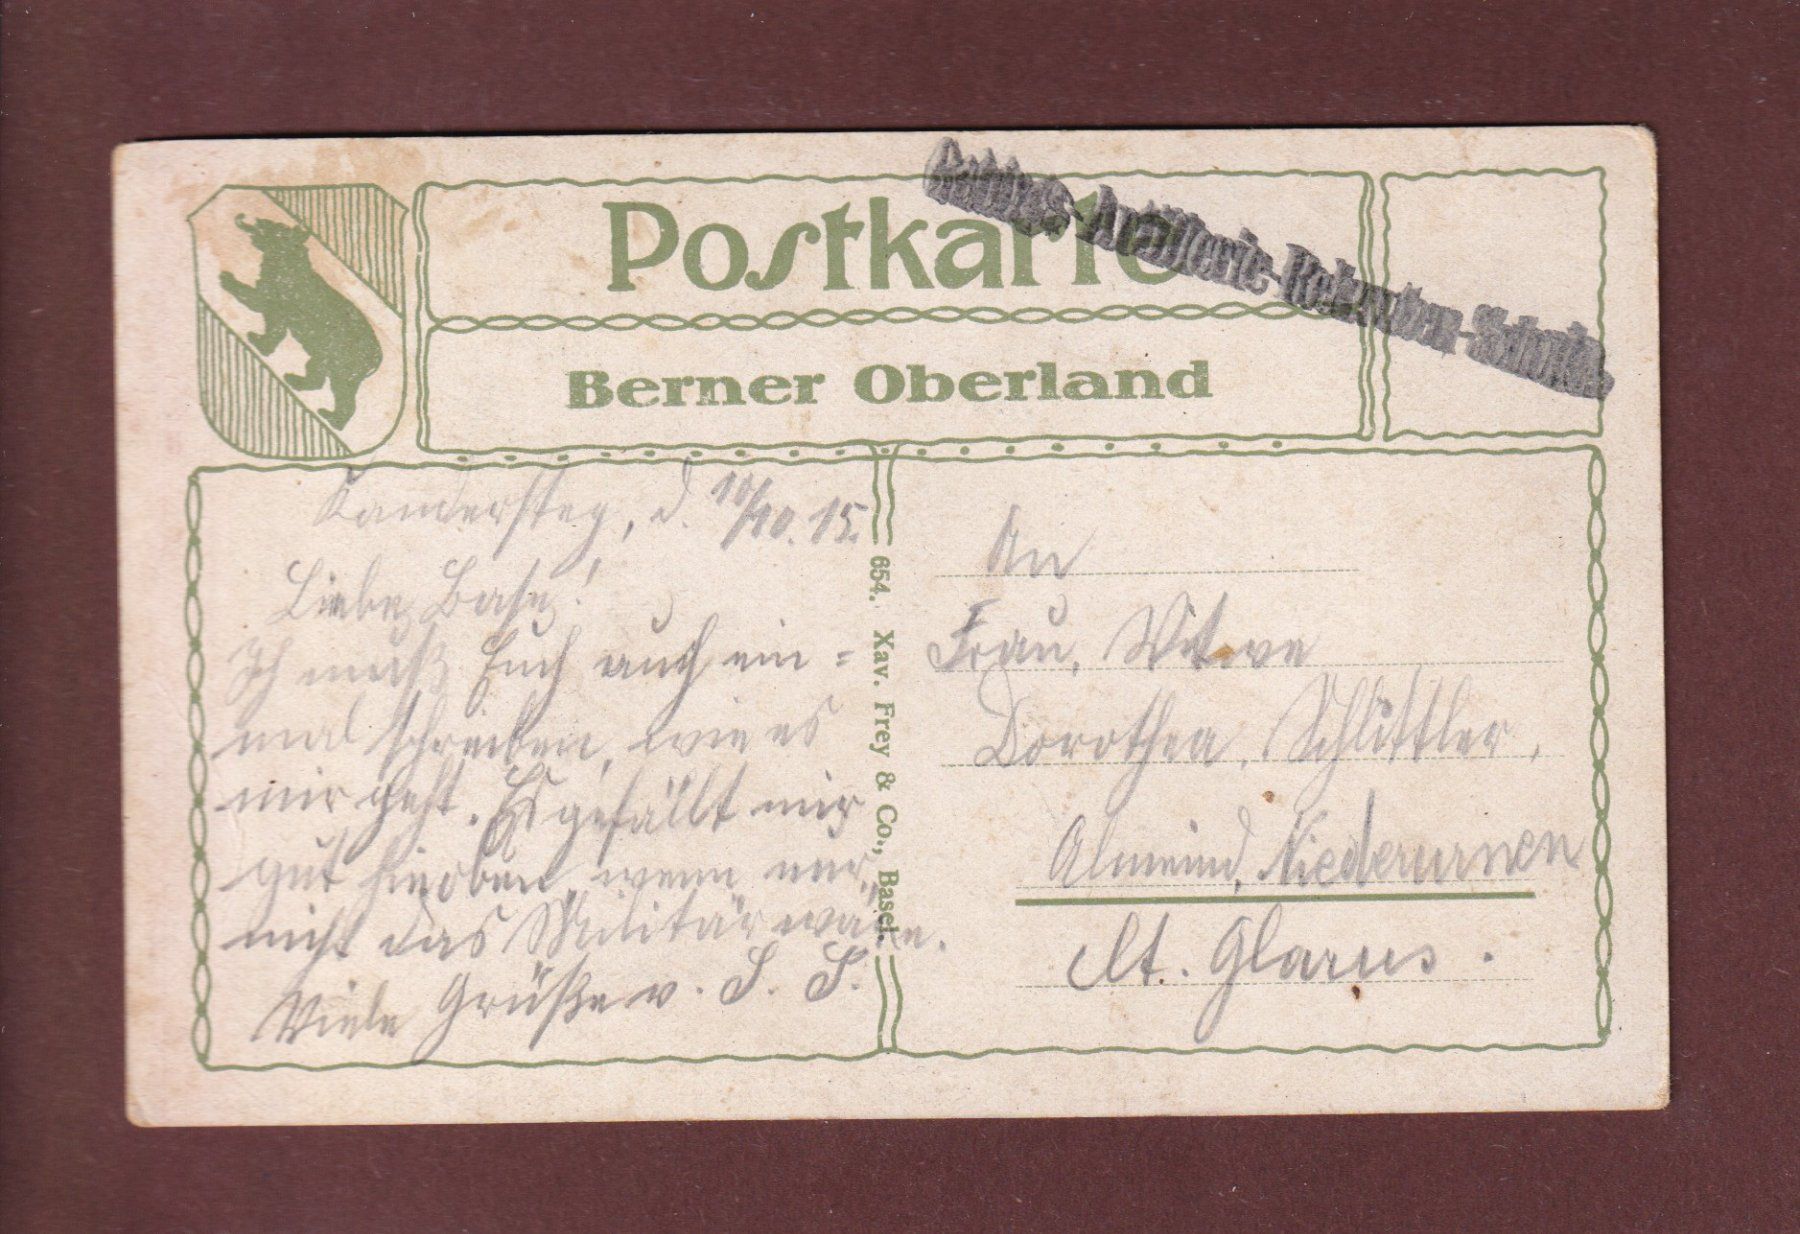 Postkarte
Gebirgs-Artillerie-Rekruten-Schule.
Berner Oberland
Kandersteg, d. 10/10. 15.
Liebe Base!
Ich muß Euch auch ein=
mal schreiben, wie es
mir geht. Es gefällt mir
gut hier oben, wenn nur
nicht das Militär wäre.
Viele Grüße v. S. S.
654. Xav. Frey & Co., Basel.
An
Frau, Witwe
Dorothea, Schlittler,
Almeind, Niederurnen
Kt. Glarus.